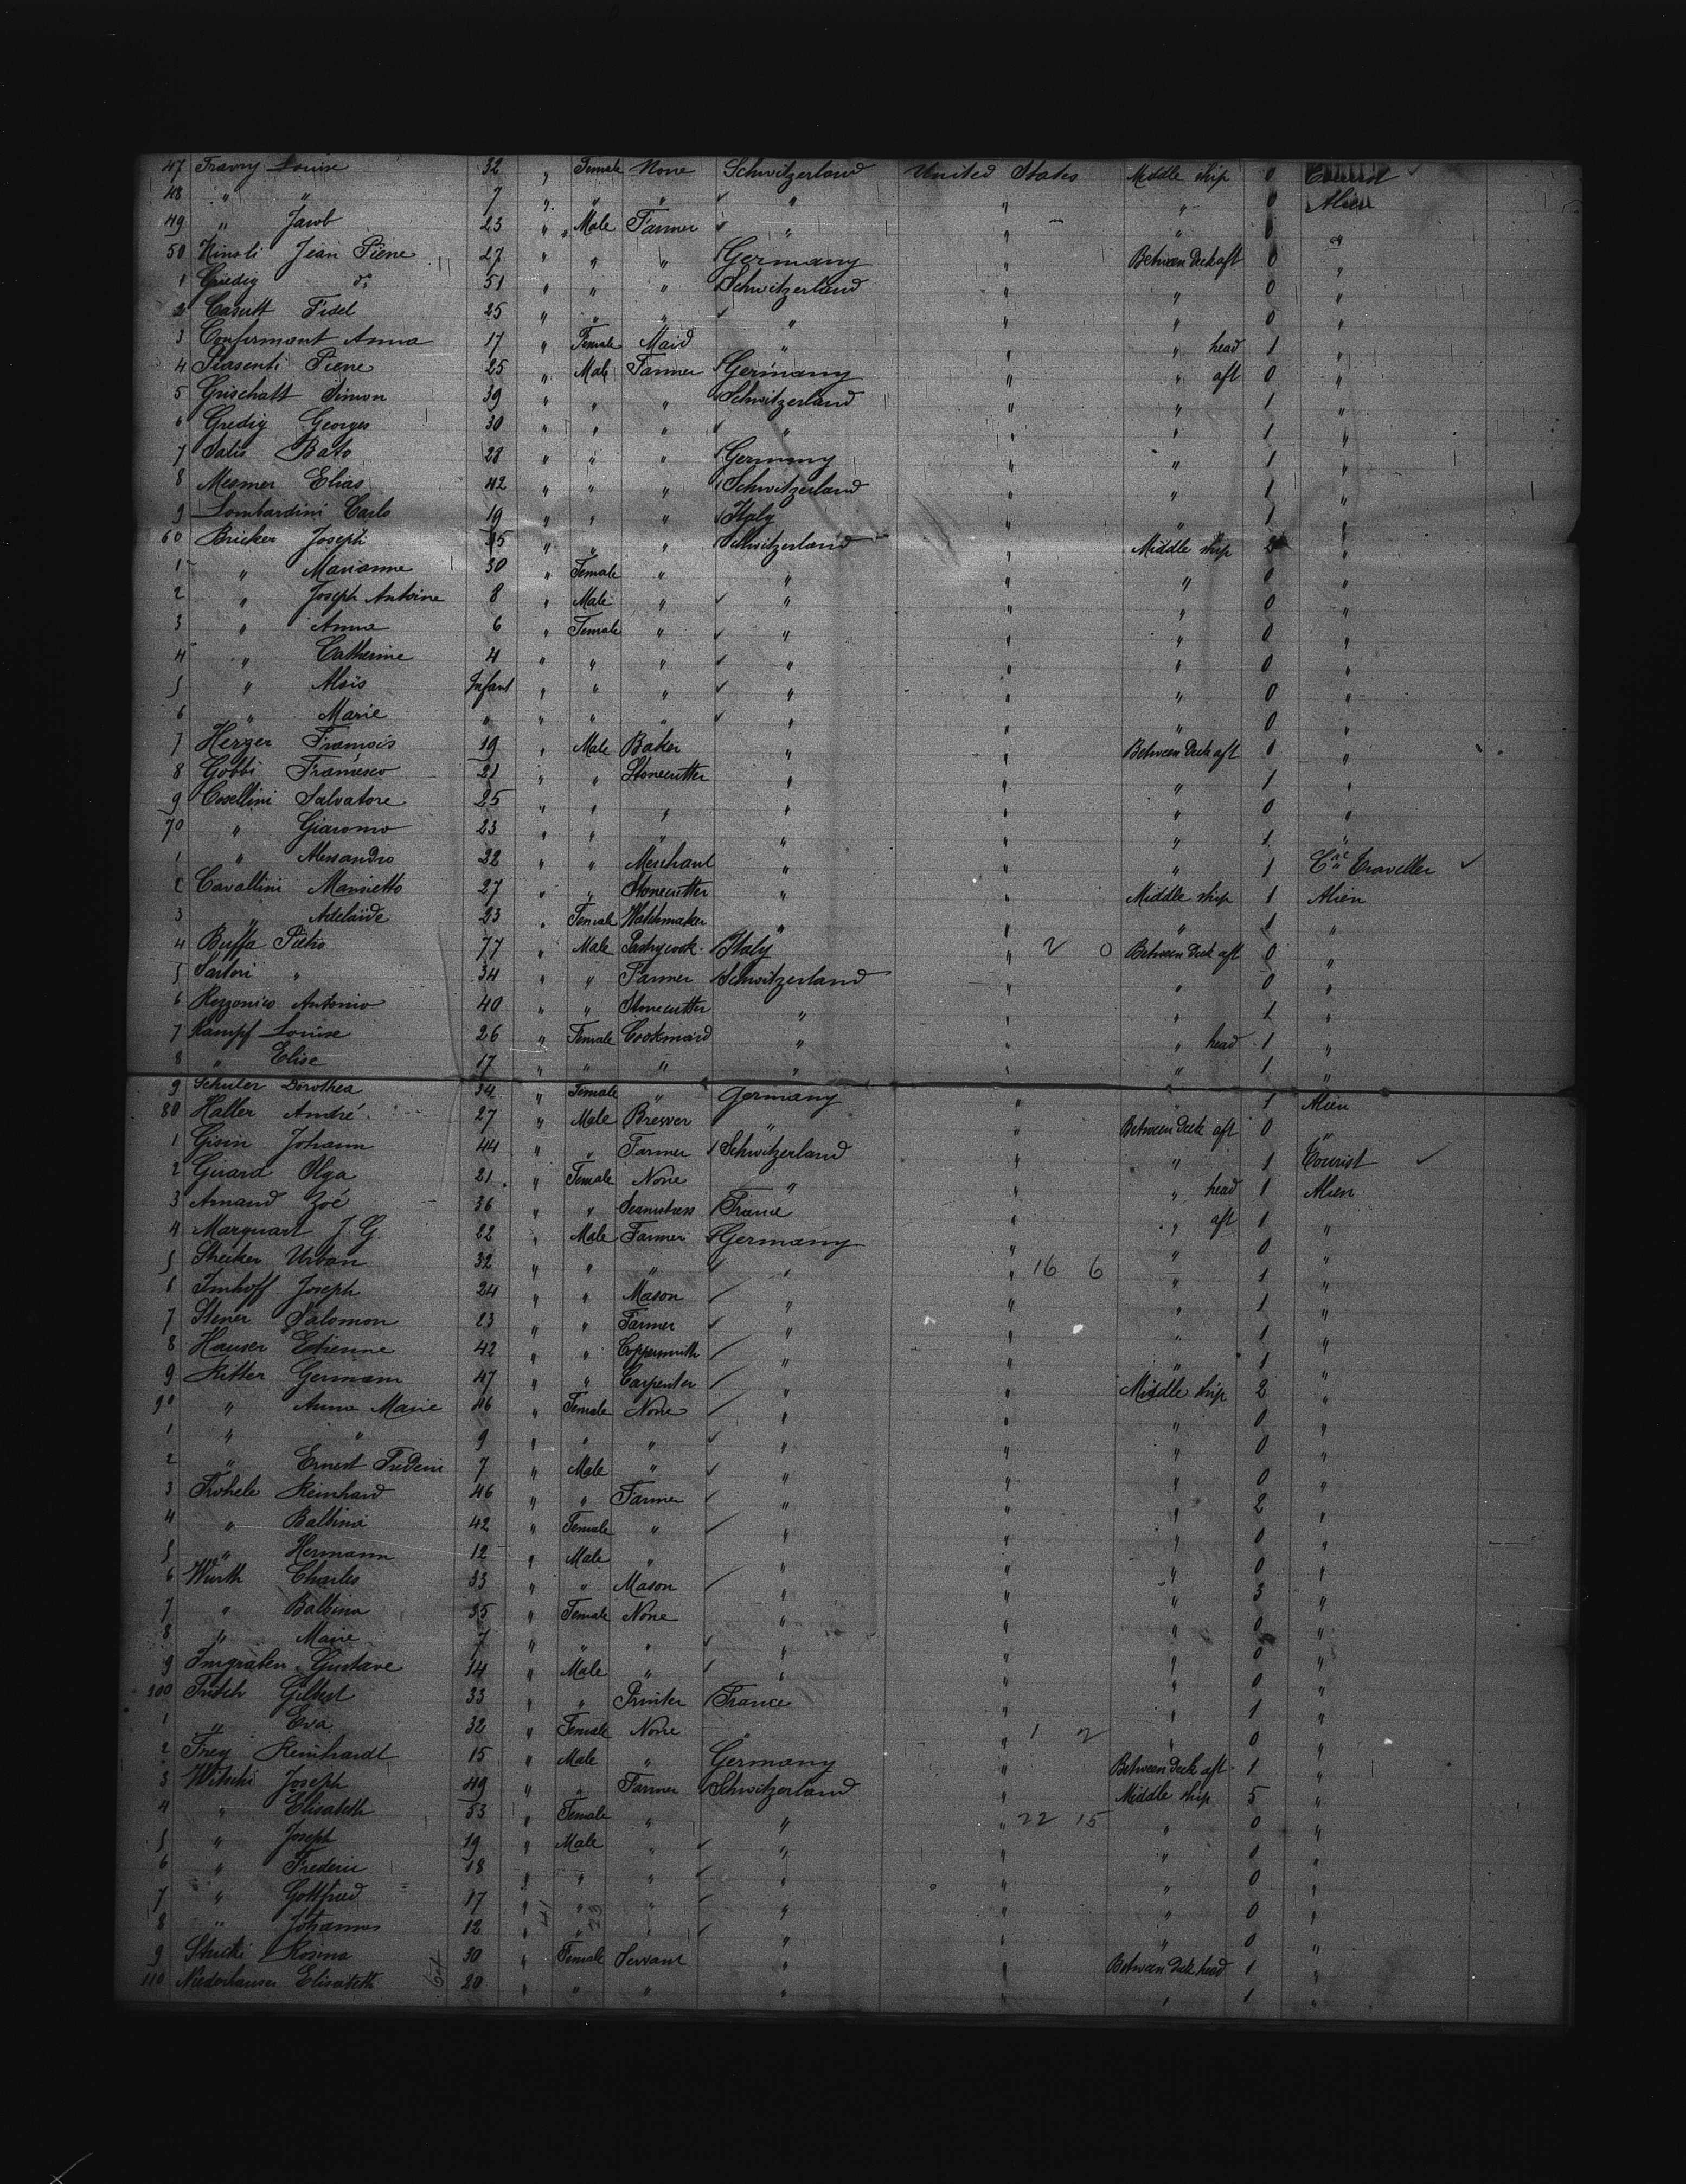 47 Travny Louise 32 " Female None Schwitzerland United States Middle ship 0
48 " " 7 " " " " " " 0 Alien
49 " Jacob 23 " Male Farmer " " " 0 "
50 Jean Pierre 27 " " " Germany " Between Deck aft 0 "
1 Gredig do 51 " " " Schwitzerland " " 0 "
2 Casutt Fidel 25 " " " " " " 0 "
3 Confirmant Anna 17 " Female Maid " " " head 1 "
4 Plasenti Pierre 25 " Male Farmer Germany " " aft 0 "
5 Grischatt Simon 39 " " " Schwitzerland " " 1 "
6 Gredig Georges 30 " " " " " " 1 "
7 Salis Bato 28 " " " Germany " " 1 "
8 Mesmer Elias 42 " " " Schwitzerland " " 1 "
9 Lombardini Carlo 19 " " " Italy " " 1 "
60 Bricker Joseph 35 " " " Schwitzerland " Middle ship 2 "
1 " Marianne 30 " Female " " " " 0 "
2 " Joseph Antoine 8 " Male " " " " 0 "
3 " Anna 6 " Female " " " " 0 "
4 " Catherine 4 " " " " " " 0 "
5 " Aloïs Infant " " " " " " 0 "
6 " Marie " " " " " " " 0 "
7 Herger François 19 " Male Baker " " Between Deck aft 1 "
8 Gobbi Francesco 21 " " Stonecutter " " " 1 "
9 Cosellini Salvatore 25 " " " " " " 0 "
70 " Giacomo 23 " " " " " " 1 "
1 " Alessandro 22 " " Merchant " " " 1 Traveller
2 Cavallini Mansietto 27 " " Stonecutter " " Middle ship 1 Alien
3 " Adelaïde 23 " Female Watchmaker " " " 1 "
4 Buffa Pietro 77 " Male Pastrycook Italy " 2 0 Between Deck aft 0 "
5 Sartori " 34 " " Farmer Schwitzerland " " 0 "
6 Rezzonico Antonio 40 " " Stonecutter " " " 1 "
7 Kampf Louise 26 " Female Cookmaid " " " head 1 "
8 " Elise 17 " " " " " " 1 "
9 Schuler Dorothea 34 " Female " Germany " " 1 Alien
80 Haller André 27 " Male Brewer " " Between Deck aft 0 "
1 Gisin Johann 44 " " Farmer Schwitzerland " " 1 Tourist
2 Girard Olga 21 " Female None " " " head 1 Alien
3 Arnaud Zoé 36 " " Seamstress France " " aft 1 "
4 Marquart J. G. 22 " Male Farmer Germany " " 0 "
5 Strecker Urban 32 " " " " " 16 6 " 1 "
6 Imhoff Joseph 24 " " Mason " " " 1 "
7 Stener Salomon 23 " " Farmer " " " 1 "
8 Hauser Etienne 42 " " Coppersmith " " " 1 "
9 Ritter Germann 47 " " Carpenter " " Middle ship 2 "
90 " Anna Marie 46 " Female None " " " 0 "
1 " " 9 " " " " " " 0 "
2 " Ernest Frederic 7 " Male " " " " 0 "
3 Trohele Reinhard 46 " " Farmer " " " 2 "
4 " Balbina 42 " Female " " " " 0 "
5 " Hermann 12 " Male " " " " 0 "
6 Wurth Charles 33 " " Mason " " " 3 "
7 " Balbina 35 " Female None " " " 0 "
8 " Marie 7 " " " " " " 0 "
9 Imgraben Gustave 14 " Male " " " " 0 "
100 Fritsch Gilbert 33 " " Printer France " " 1 "
1 " Eva 32 " Female None " " 1 2 " 0 "
2 Frey Reinhardt 15 " Male " Germany " Between Deck aft 1 "
3 Witschi Joseph 49 " " Farmer Schwitzerland " Middle ship 5 "
4 " Elisabeth 53 " Female " " " 22 15 " 0 "
5 " Joseph 19 " Male " " " " 0 "
6 " Frederic 18 " " " " " " 0 "
7 " Gottfried 17 " " " " " " 0 "
8 " Johannes 12 " " " " " " 0 "
9 Stucki Rosina 30 " Female Servant " " Between Deck head 1 "
110 Niederhauser Elisabeth 20 " " " " " " 1 "